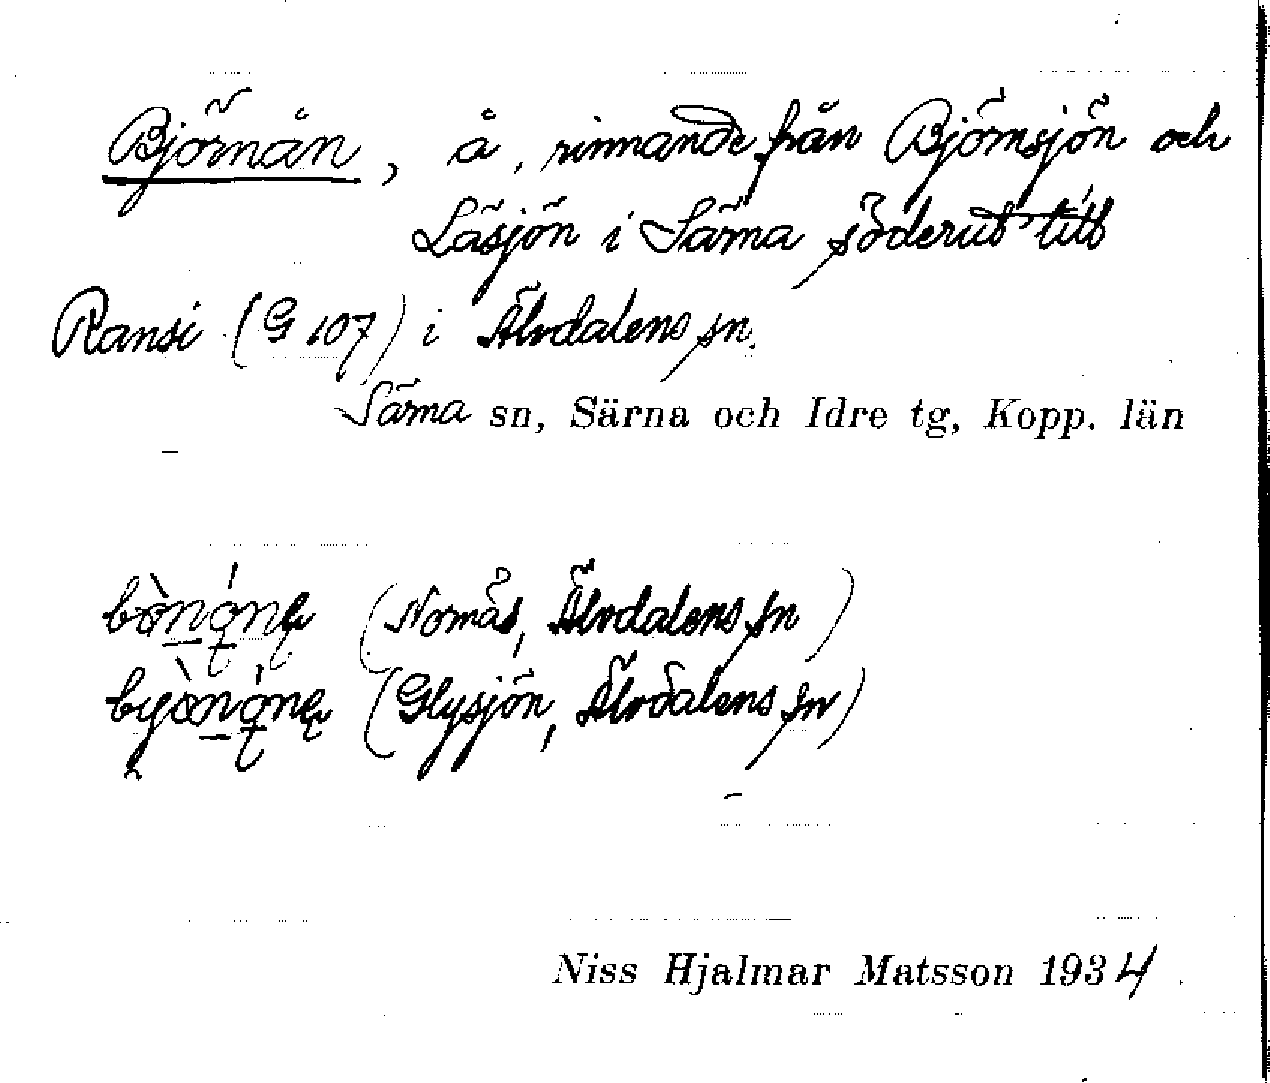 Björnån, å, rinnande från Björnsjön och
Läsjön i Särna söderut till
Ransi (G 107) i Älvdalens sn.
Särna sn, Särna och Idre tg, Kopp. län
(Nornäs, Älvdalens sn)
(Glysjön, Älvdalens sn)
Niss Hjalmar Matsson 1934